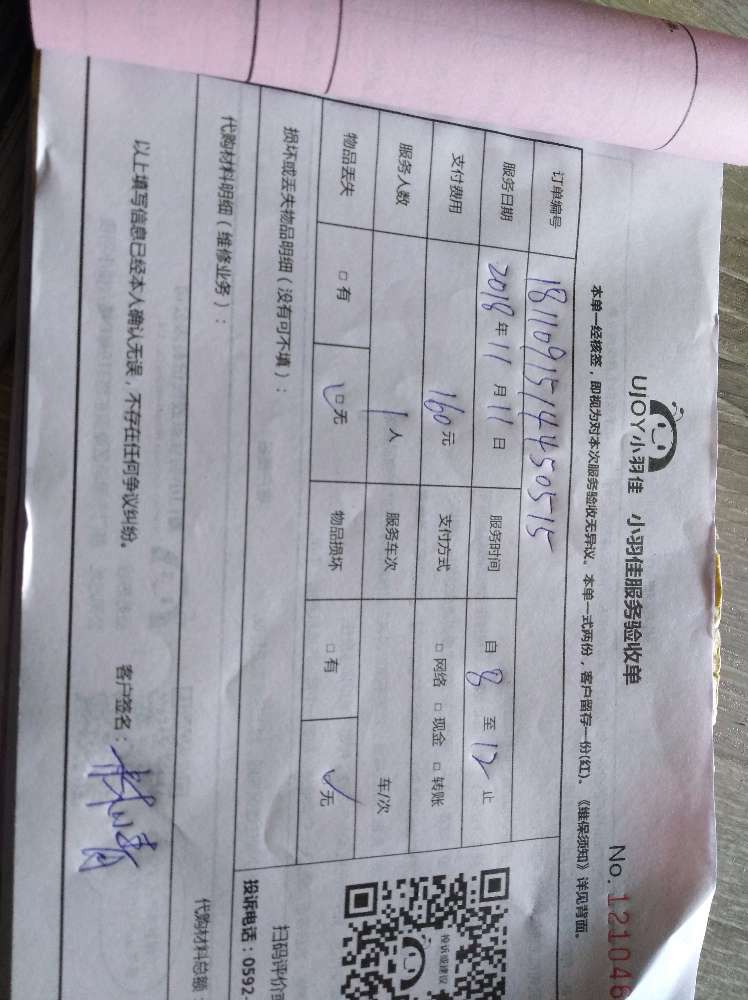 UJOY小羽佳 小羽佳服务验收单
No. 121048
本单一经核签，即视为对本次服务验收无异议。本单一式两份，客户留存一份(红)。《维保须知》详见背面。
订单编号 18110915144450515
服务日期 2018年11月11日 服务时间 自8至12止
支付费用 160元 支付方式 □网络 □现金 □转账
服务人数 1人 服务车次 车/次
物品丢失 □有 □无 物品损坏 □有 无
损坏或丢失物品明细（没有可不填）：
代购材料明细（维修业务）：
代购材料总额
以上填写信息已经本人确认无误，不存在任何争议纠纷。 客户签名：
投诉或建议
扫码评价或
投诉电话：0592-